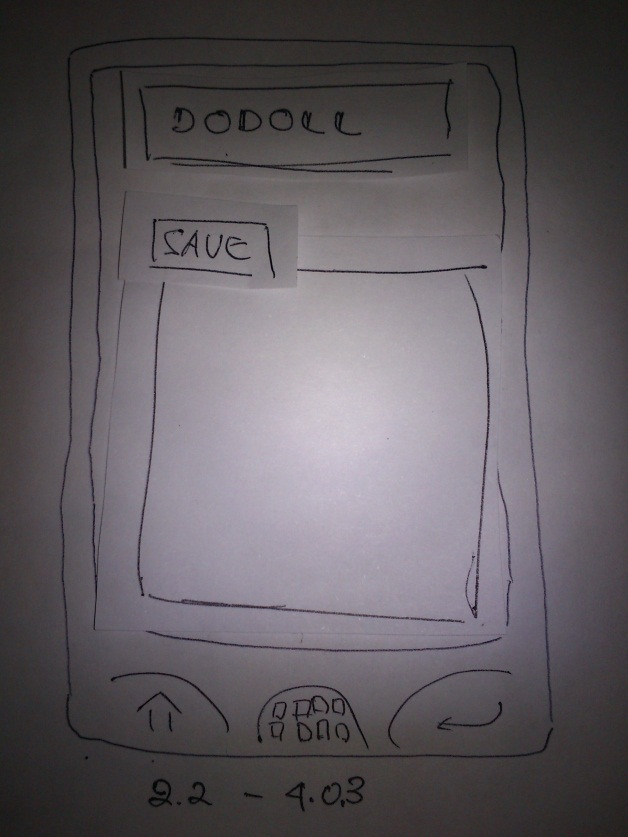 DODOLL
SAVE
2.2 - 4.0.3